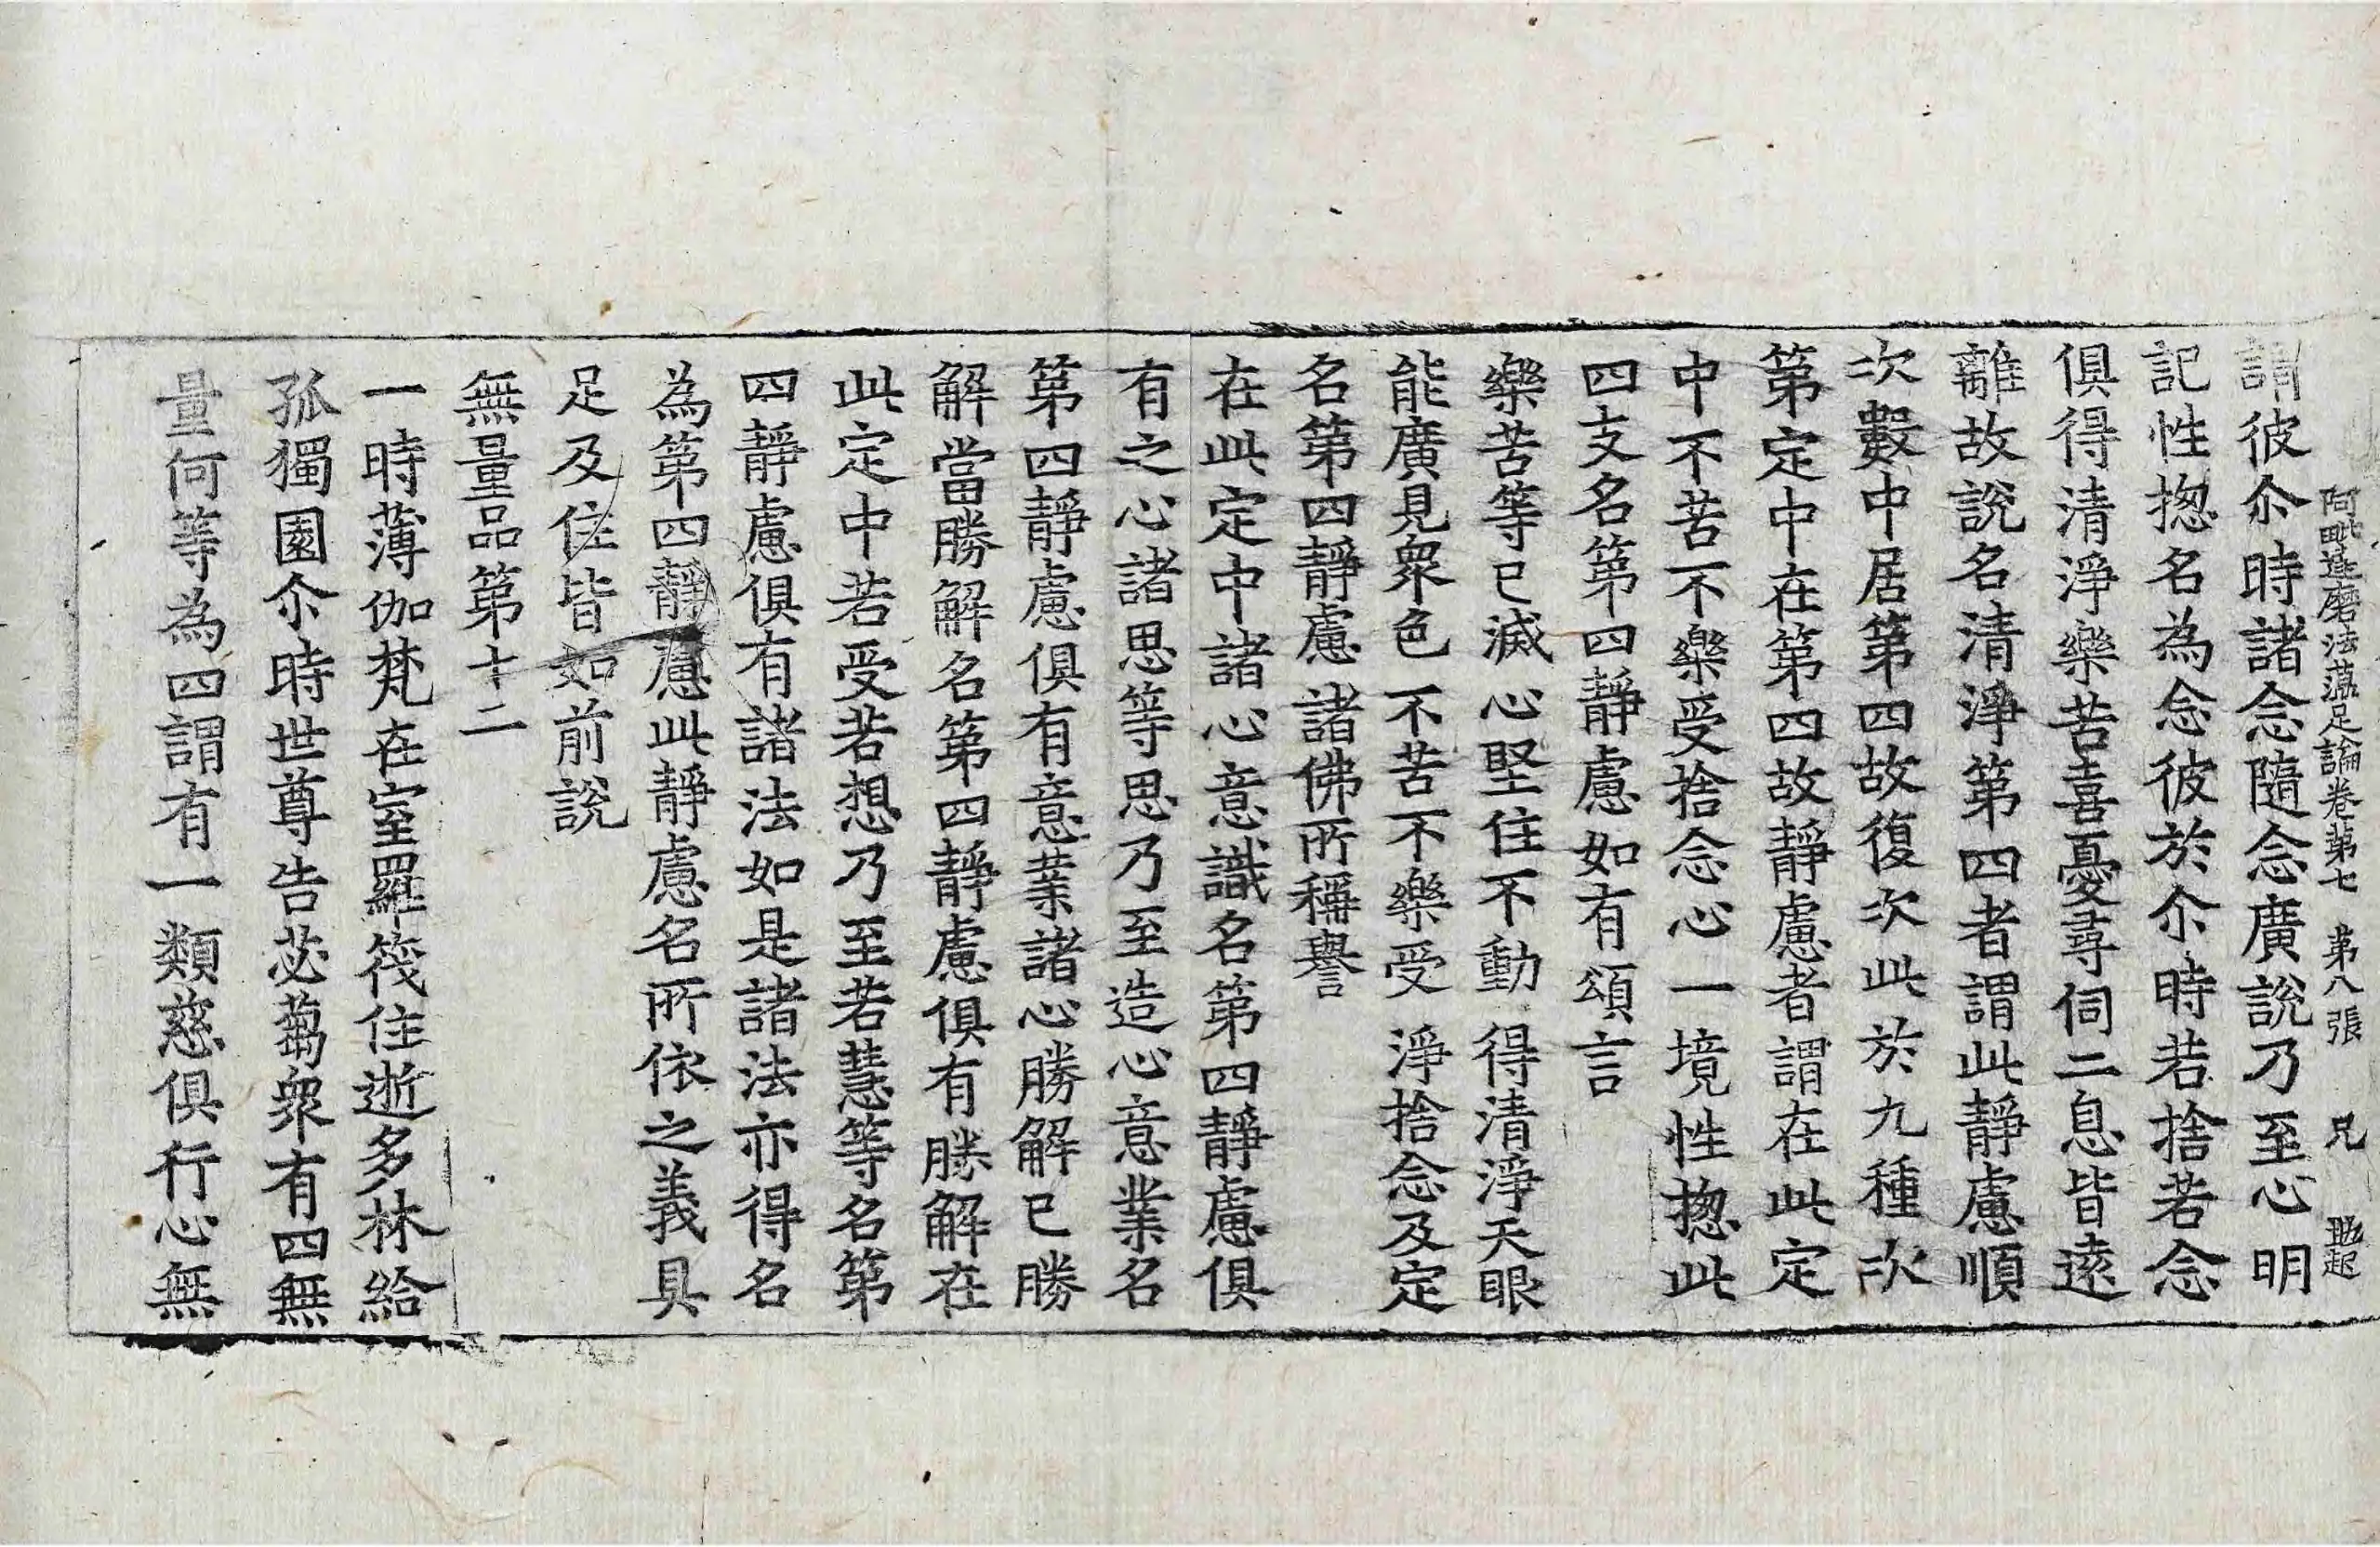 阿毗達磨法蕰足論卷第七 第八張 兄
謂彼尒時諸念隨念廣說乃至心明
記性揔名為念彼於尒時若捨若念
俱得清淨樂苦喜憂尋伺二息皆遠
離故說名清淨第四者謂此靜慮順
次數中居第四故復次此於九種次
第定中在第四故靜慮者謂在此定
中不苦不樂受捨念心一境性揔此
四支名第四靜慮如有頌言
樂苦等已滅心堅住不動 得清淨天眼
能廣見衆色 不苦不樂受 淨捨念及定
名第四靜慮 諸佛所稱譽
在此定中諸心意識名第四靜慮俱
有之心諸思等思乃至造心意業名
第四靜慮俱有意業諸心勝解已勝
解當勝解名第四靜慮俱有勝解在
此定中若受若想乃至若慧等名第
四靜慮俱有諸法如是諸法亦得名
為第四靜慮此靜慮名所依之義具
足及住皆如前說
無量品第十二
一時薄伽梵在室羅筏住逝多林給
孤獨園尒時世尊告苾蒭衆有四無
量何等為四謂有一類慈俱行心無